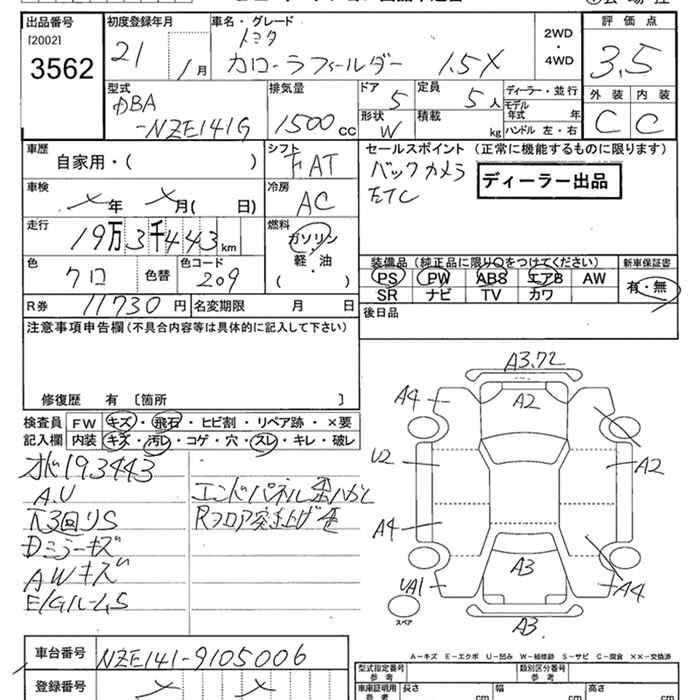 出品番号
[2002]
3562
初度登録年月
21 1月
車名・グレード
トヨタ
カローラフィールダー 1.5X
2WD
・
4WD
評価点
3.5
外装 内装
C C
型式
DBA
-NZE141G
排気量
1500 cc
ドア
5
定員
5人
形状
W
積載
kg
ディーラー・並行
モデル年式 年
ハンドル 左・右
車歴
自家用・( )
シフト
FAT
セールスポイント (正常に機能するものに限ります)
バックカメラ
ETC
ディーラー出品
車検
メ年 メ月( 日)
冷房
AC
走行
19万3千443km
燃料
ガソリン
軽・油
( )
色
クロ
色替
色コード
209
装備品 (純正品に限り○をつけてください)
PS PW ABS エアB AW
SR ナビ TV カワ
新車保証書
有・無
R券 11730円
名変期限 月 日
後日品
注意事項申告欄(不具合内容等は具体的に記入して下さい)
修復歴 有 〔箇所 〕
検査員記入欄
FW キズ・飛石・ヒビ割・リペア跡・×要
内装 キズ・汚レ・コゲ・穴・スレ・キレ・破レ
オド193443
A.U
下3回りS
Dミラーキズ
AWキズ
E/GルームS
エンドパネル歪ハガレ
Rフロア突上げ歪
A3,72
A4
A2
U2
A2
A4
A3
UA1
A4
A3
スペア
A−キズ E−エクボ U−凹み W−補修跡 S−サビ C−腐食 ××−交換済
車台番号 NZE141-9105006
登録番号 メ メ
型式指定番号 参考
類別区分番号 参考
車庫証明用 参考
長さ cm
幅 cm
高さ cm